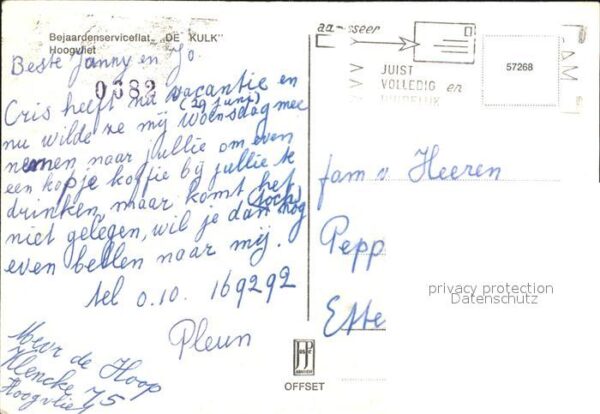 Bejaardenserviceflat "DE KULK"
Hoogvliet
Beste Janny en Jo.
0682
Cris heeft nu vacantie en
(29 juni)
nu wilde ze mij Woensdag mee
nemen naar jullie om even
een kopje koffie bij jullie te
drinken, maar komt het
(toch)
niet gelegen, wil je dan nog
even bellen naar mij.
tel 0.10. 169292
Pleun
Mevr de Hoop
Hencke 75
Hoogvliet
JUIST
VOLLEDIG en
57268
fam v. Heeren
Pepp
Ette
privacy protection
Datenschutz
OFFSET